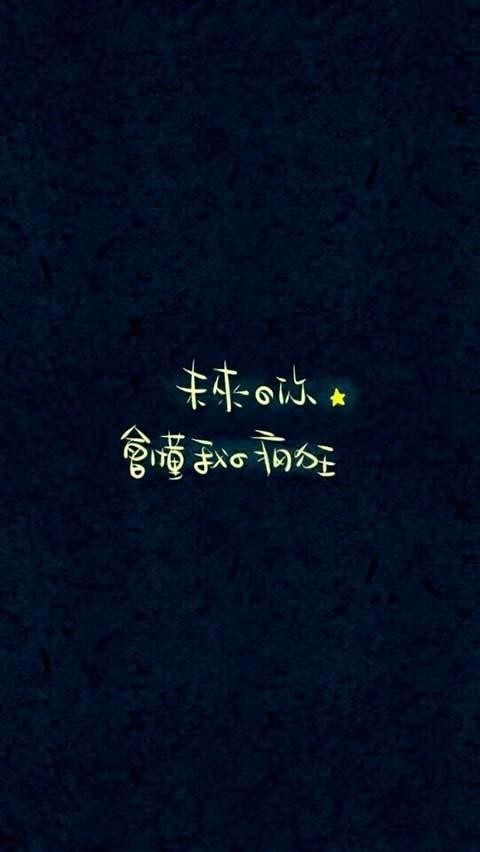 未來の你
會懂我の疯狂